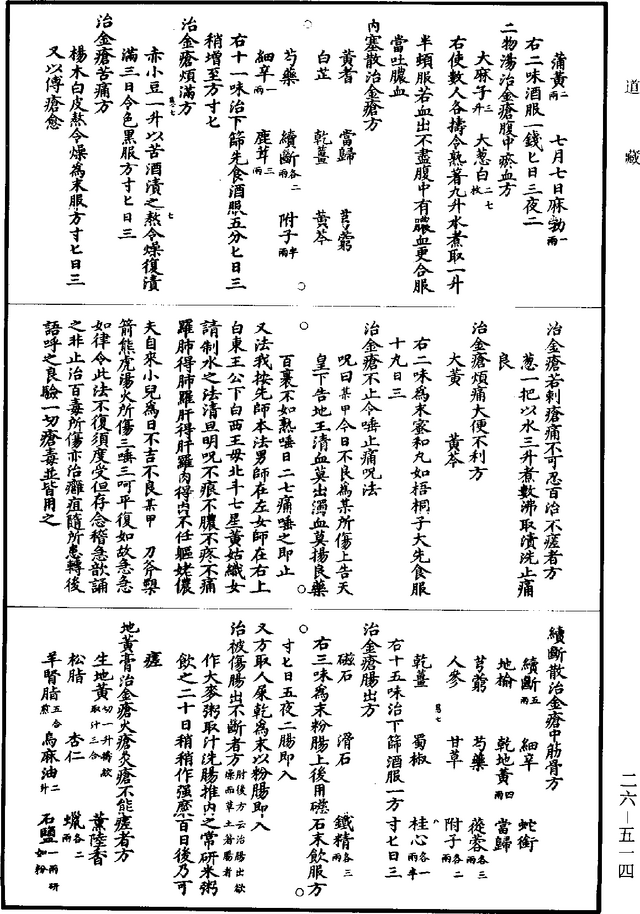 道藏
蒲黄二兩　七月七日麻勃一兩
右二味酒服一錢匕日三夜二
二物湯治金瘡腹中瘀血方
大麻子三升　大葱白二七枚
右使數人各擣令熟著九升水煮取一升
半頓服若血出不盡腹中有膿血更合服
當吐膿血
内塞散治金瘡方
黄耆　當歸　芎藭
白芷　乾薑　黄芩
芍藥　續斷各二兩　附子半兩
細辛一兩　鹿茸三兩
右十一味治下篩先食酒服五分匕日三
稍增至方寸匕
治金瘡煩滿方
赤小豆一升以苦酒漬之熬令燥復漬
滿三日令色黑服方寸匕日三
治金瘡苦痛方
楊木白皮熬令燥爲末服方寸匕日三
又以傅瘡愈
治金瘡若刺瘡痛不可忍百治不瘥者方
葱一把以水三升煮數沸取漬洗止痛
良
治金瘡煩痛大便不利方
大黄　黄芩
右二味爲末蜜和丸如梧桐子大先食服
十丸日三
治金瘡不止令唾止痛呪法
呪曰某甲今日不良爲某所傷上告天
皇下告地王清血莫出濁血莫揚良藥
百裹不如熟唾日二七痛唾之即止
又法我按先師本法男師在左女師在右上
白東王公下白西王母北斗七星黄姑織女
請制水之法清旦明呪不痕不膿不疼不痛
羅肺得肺羅肝得肝羅肉得肉不任軀姥儂
夫自來小兒爲日不吉不良某甲　刀斧槊
箭熊虎湯火所傷三唾三呵平復如故急急
如律令此法不復須度受但存念稽急歆誦
之非止治百毒所傷亦治癰疽隨所患轉後
語呼之良驗一切瘡毒並皆用之
續斷散治金瘡中筋骨方
續斷五兩　細辛　蛇銜
地榆　乾地黄四兩　當歸
芎藭　芍藥　蓯蓉各三兩
人參　甘草　附子各二兩
乾薑　蜀椒　桂心各一兩半
右十五味治下篩酒服一方寸匕日三
治金瘡腸出方
磁石　滑石　鐵精各三兩
右三味爲末粉腸上後用磁石末飲服方
寸匕日五夜二腸即入
又方取人屎乾爲末以粉腸即入
治被傷腸出不斷者方肘後方云治腸出欲燥而草土著腸者
作大麥粥取汁洗腸推内之常研米粥
飲之二十日稍稍作强麋百日後乃可
瘥
地黄膏治金瘡火瘡灸瘡不能瘥者方
生地黄切一升擣絞取汁三合　薰陸香
松脂　杏仁　蠟各二兩
羊腎脂五合煎　烏麻油二升　石鹽一兩研如粉
二六—五一四